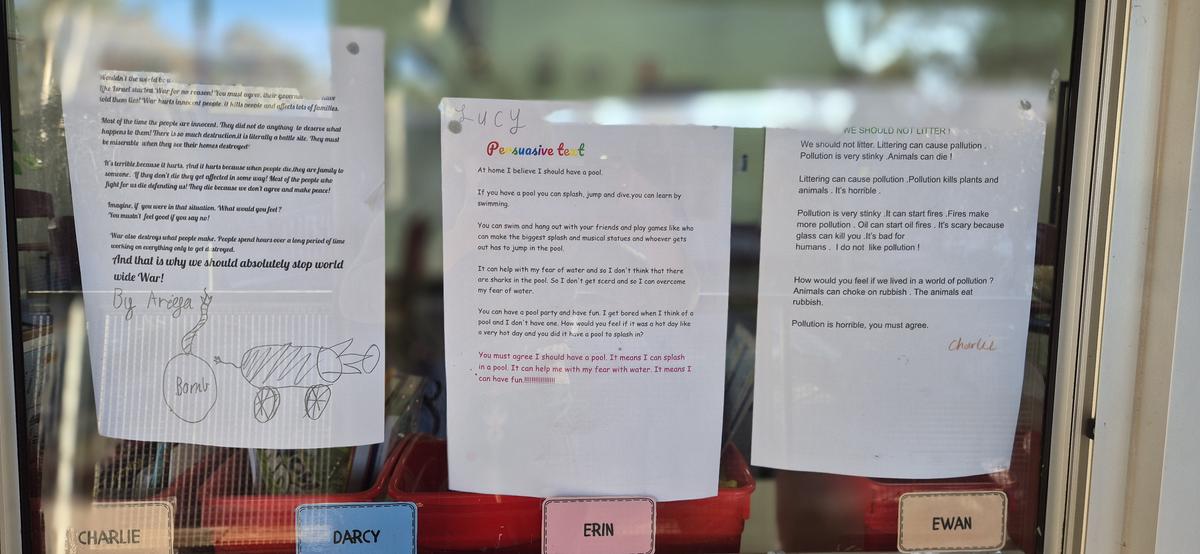 Wouldn't the world be
Like Israel started War for no reason! You must agree, their govern have
told them lies! War hurts innocent people. it kills people and affects lots of families.
Most of the time the people are innocent. They did not do anything to deserve what
happens to them! There is so much destruction,it is literally a battle site. They must
be miserable when they see their homes destroyed!
It's terrible,because it hurts. And it hurts because when people die,they are family to
someone. If they don't die they get affected in some way! Most of the people who
fight for us die defending us! They die because we don't agree and make peace!
Imagine, if you were in that situation. What would you feel?
You mustn't feel good if you say no!
War also destroys what people make. People spend hours over a long period of time
working on everything only to get destroyed.
And that is why we should absolutely stop world
wide War!
By Ariega
Bomb
LUCY
Persuasive text
At home I believe I should have a pool.
If you have a pool you can splash, jump and dive.you can learn by
swimming.
You can swim and hang out with your friends and play games like who
can make the biggest splash and musical statues and whoever gets
out has to jump in the pool.
It can help with my fear of water and so I don't think that there
are sharks in the pool. So I don't get scerd and so I can overcome
my fear of water.
You can have a pool party and have fun. I get bored when I think of a
pool and I don't have one. How would you feel if it was a hot day like
a very hot day and you did it have a pool to splash in?
You must agree I should have a pool. It means I can splash
in a pool. It can help me with my fear with water. It means I
can have fun.!!!!!!!!!!!!!!!!
WE SHOULD NOT LITTER !
We should not litter. Littering can cause pallution .
Pollution is very stinky .Animals can die !
Littering can cause pollution .Pollution kills plants and
animals . It's horrible .
Pollution is very stinky .It can start fires .Fires make
more pollution . Oil can start oil fires . It's scary because
glass can kill you .It's bad for
humans . I do not like pollution !
How would you feel if we lived in a world of pollution ?
Animals can choke on rubbish . The animals eat
rubbish.
Pollution is horrible, you must agree.
Charlie
CHARLIE
DARCY
ERIN
EWAN